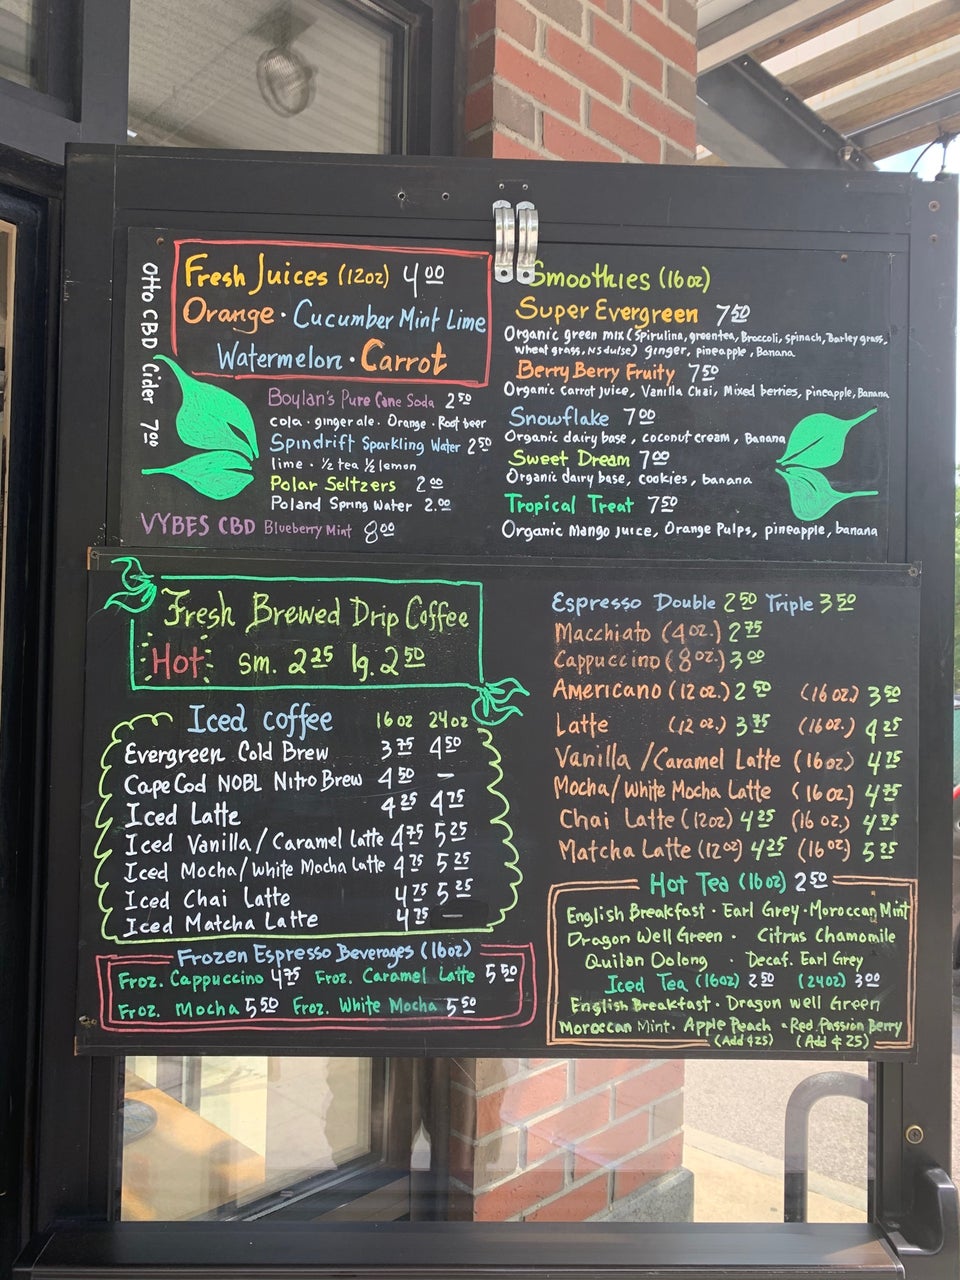 Otto CBD Cider 7.00
Fresh Juices (12oz) 4.00
Orange · Cucumber Mint Lime
Watermelon · Carrot
Boylan's Pure Cane Soda 2.50
cola · ginger ale · Orange · Root beer
Spindrift Sparkling Water 2.50
lime · ½ tea ½ lemon
Polar Seltzers 2.00
Poland Spring Water 2.00
VYBES CBD Blueberry Mint 8.00
Smoothies (16oz)
Super Evergreen 7.50
Organic green mix (Spirulina, green tea, Broccoli, spinach, Barley grass,
wheat grass, NS dulse) ginger, pineapple, Banana
Berry Berry Fruity 7.50
Organic carrot juice, Vanilla Chai, Mixed berries, pineapple, Banana
Snowflake 7.00
Organic dairy base, coconut cream, Banana
Sweet Dream 7.00
Organic dairy base, cookies, banana
Tropical Treat 7.50
Organic Mango juice, Orange Pulps, pineapple, banana
Fresh Brewed Drip Coffee
Hot sm. 2.25 lg. 2.50
Iced coffee 16oz 24oz
Evergreen Cold Brew 3.75 4.50
Cape Cod NOBL Nitro Brew 4.50 —
Iced Latte 4.25 4.75
Iced Vanilla/Caramel latte 4.75 5.25
Iced Mocha/white Mocha Latte 4.75 5.25
Iced Chai Latte 4.75 5.25
Iced Matcha Latte 4.75 —
Frozen Espresso Beverages (16oz)
Froz. Cappuccino 4.75 Froz. Caramel Latte 5.50
Froz. Mocha 5.50 Froz. White Mocha 5.50
Espresso Double 2.50 Triple 3.50
Macchiato (4oz.) 2.75
Cappuccino (8oz.) 3.00
Americano (12oz.) 2.50 (16oz.) 3.50
Latte (12oz.) 3.75 (16oz.) 4.25
Vanilla/Caramel Latte (16oz) 4.75
Mocha/White Mocha Latte (16oz) 4.75
Chai Latte (12oz) 4.25 (16oz.) 4.75
Matcha Latte (12oz) 4.25 (16oz) 5.25
Hot Tea (16oz) 2.50
English Breakfast · Earl Grey · Moroccan Mint
Dragon Well Green · Citrus Chamomile
Quilan Oolong · Decaf. Earl Grey
Iced Tea (16oz) 2.50 (24oz) 3.00
English Breakfast · Dragon Well Green
Moroccan Mint · Apple Peach · Red Passion Berry
(Add ¢25) (Add ¢25)